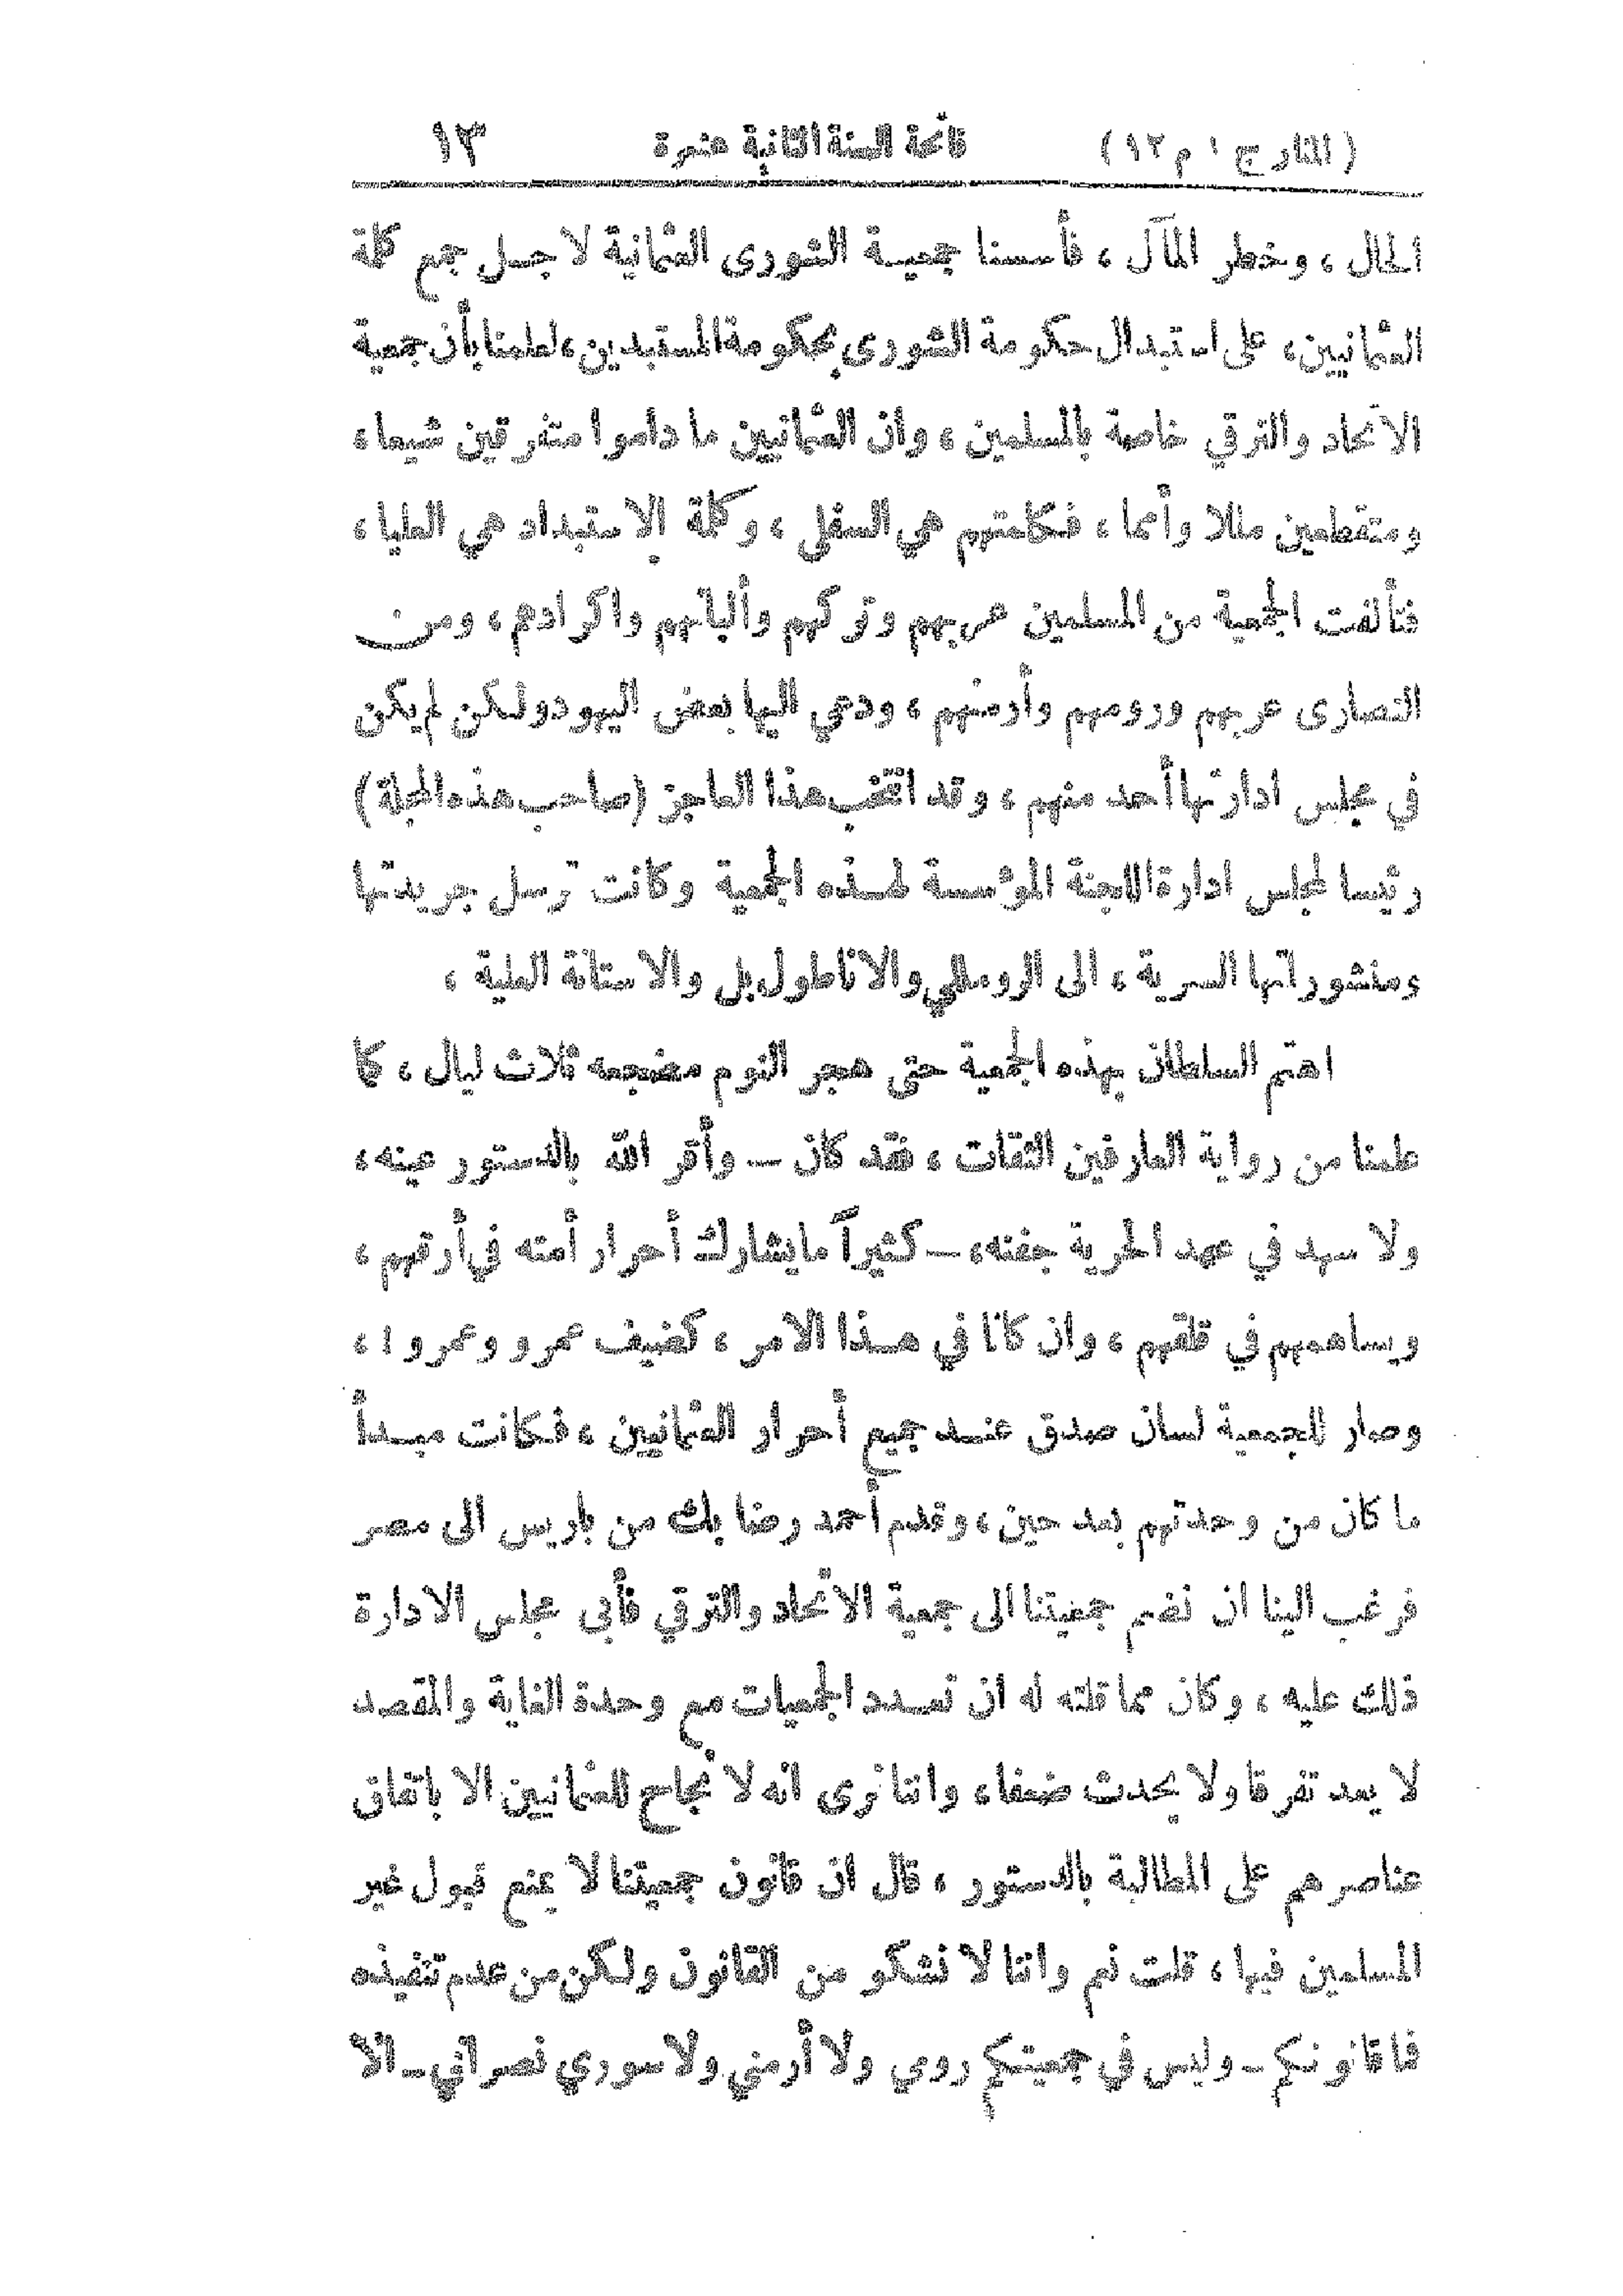 (المنار ج ١ م ١٢) فاتحة السنة الثانية عشرة ١٣
الحال ، وخطر المآل ، فأسسنا جمعية الشورى العثمانية لاجل جمع كلمة
العثمانيين ، على استبدال حكومة الشورى بحكومة المستبدين ، لعلمنا بأن جمعية
الاتحاد والترقي خاصة بالمسلمين ، وان العثمانيين ما داموا متفرقين شيعا ،
ومتقطعين مللا وأمما ، فكلمتهم هي السفلى ، وكلمة الاستبداد هي العليا ،
فتألفت الجمعية من المسلمين عربهم وتركهم وألبانهم واكرادهم ، ومن
النصارى عربهم ورومهم وأرمنهم ، ودعي اليها بعض اليهود ولكن لم يكن
في مجلس ادارتها أحد منهم ، وقد انتخب هذا العاجز (صاحب هذه المجلة)
رئيسا لمجلس ادارة اللجنة المؤسسة لهذه الجمعية وكانت ترسل جريدتها
ومنشوراتها السرية ، الى الروملي والاناطول بل والاستانة العلية ،
اهتم السلطان بهذه الجمعية حتى هجر النوم مضجعه ثلاث ليال ، كما
علمنا من رواية العارفين الثقات ، فقد كان — وأقر الله بالدستور عينه ،
ولا سهد في عهد الحرية جفنه ، — كثيراً ما يشارك أحرار أمته في أرقهم ،
ويساهمهم في قلقهم ، وان كانا في هذا الامر ، كضيف عمرو وعمرو ا ،
وصار للجمعية لسان صدق عند جميع أحرار العثمانيين ، فكانت مبدأ
ما كان من وحدتهم بعد حين ، وقدم أحمد رضا بك من باريس الى مصر
فرغب الينا ان نضم جمعيتنا الى جمعية الاتحاد والترقي فأبى مجلس الادارة
ذلك عليه ، وكان مما قلته له ان تعدد الجمعيات مع وحدة الغاية والمقصد
لا يعد تفرقا ولا يحدث ضعفا ، واننا نرى انه لا نجاح للعثمانيين الا باتفاق
عناصرهم على المطالبة بالدستور ، قال ان قانون جمعيتنا لا يمنع قبول غير
المسلمين فيها ، قلت نعم واننا لا نشكو من القانون ولكن من عدم تنفيذه
فما قانونكم — وليس في جمعيتكم رومي ولا أرمني ولا سوري نصراني — الا